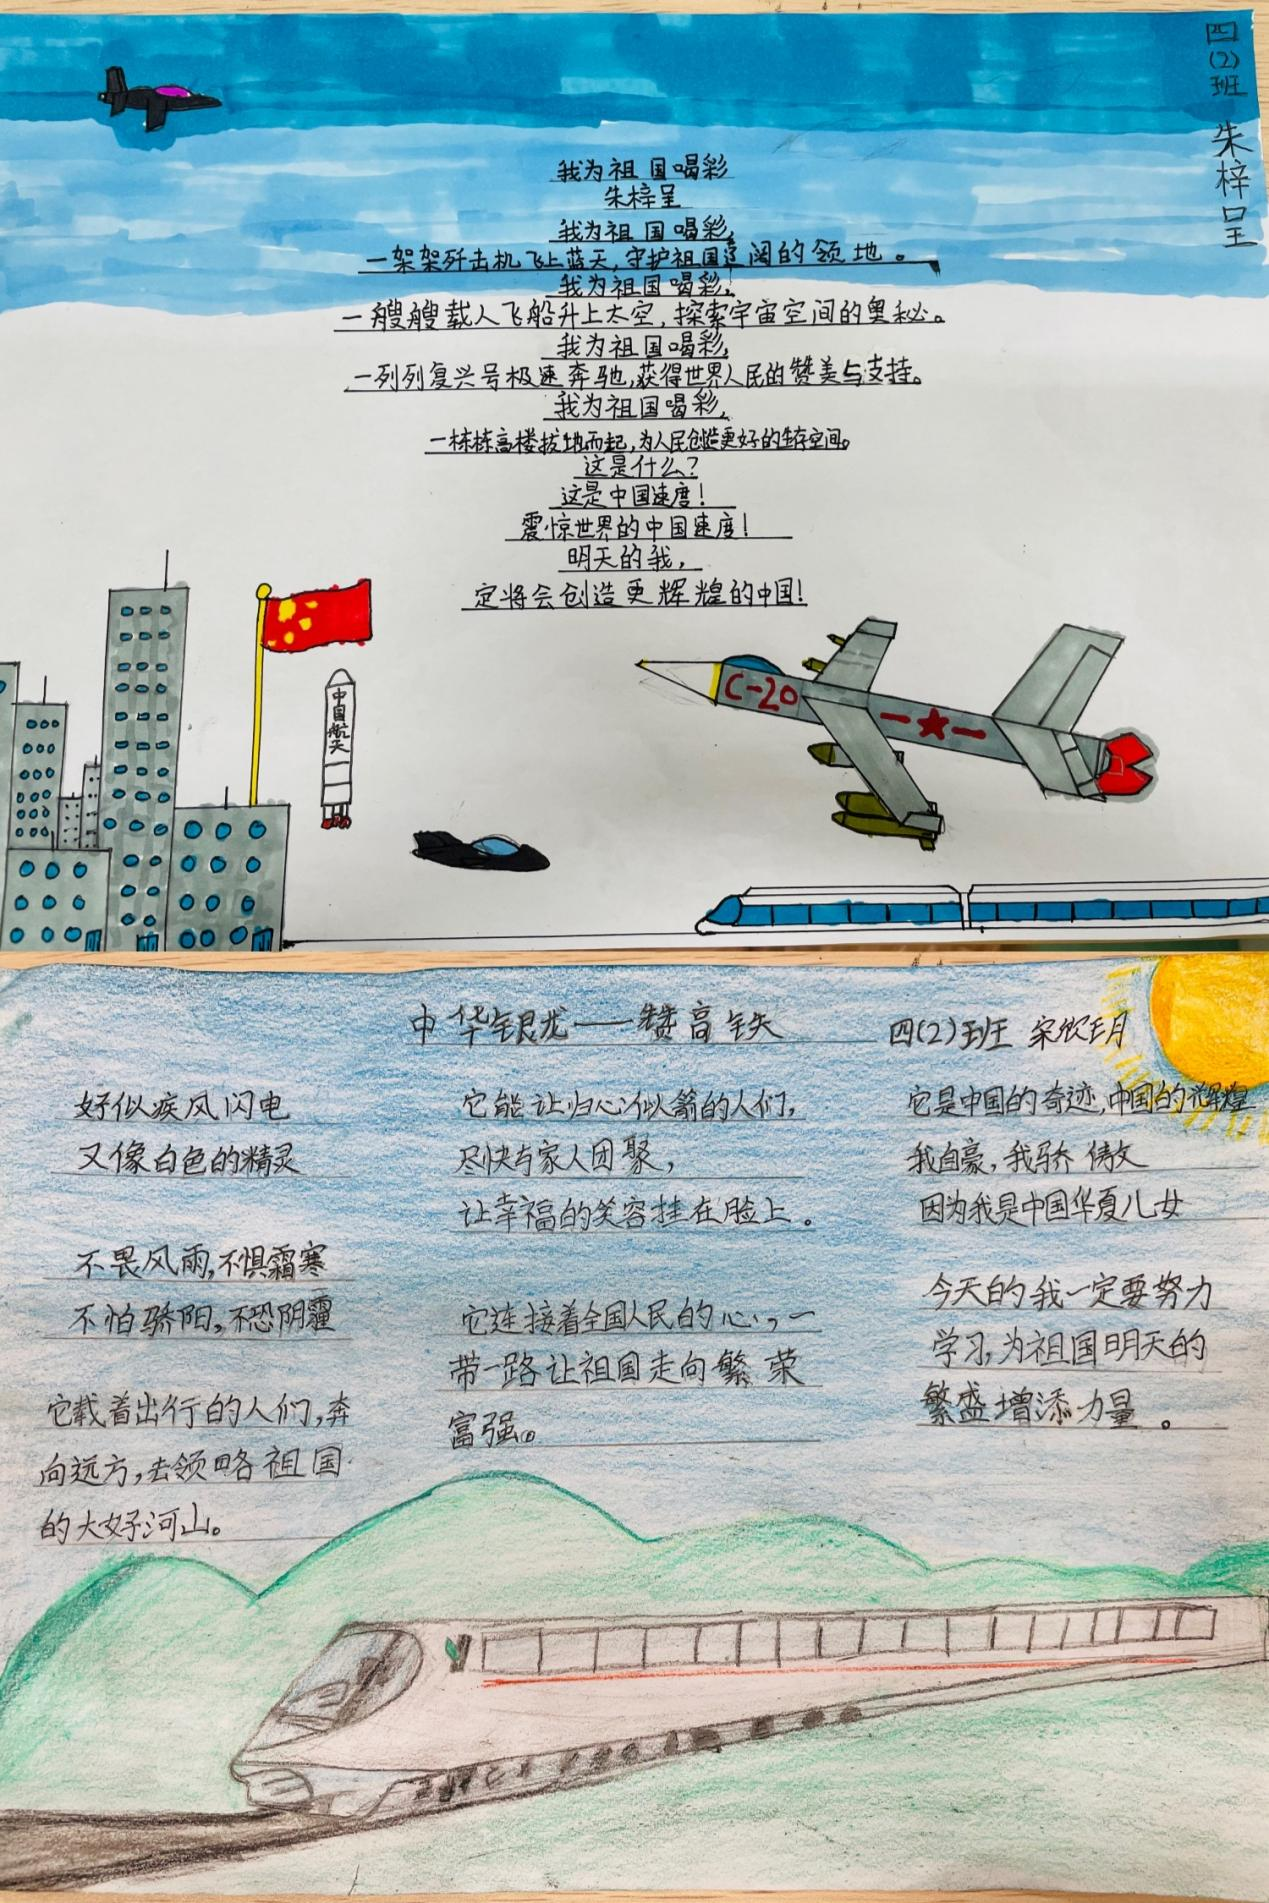 四(2)班 朱梓呈
我为祖国喝彩
朱梓呈
我为祖国喝彩,
一架架歼击机飞上蓝天,守护祖国辽阔的领地。
我为祖国喝彩,
一艘艘载人飞船升上太空,探索宇宙空间的奥秘。
我为祖国喝彩,
一列列复兴号极速奔驰,获得世界人民的赞美与支持。
我为祖国喝彩,
一栋栋高楼拔地而起,为人民创造更好的生存空间。
这是什么?
这是中国速度!
震惊世界的中国速度!
明天的我,
定将会创造更辉煌的中国!
中国航天
C-20
中华银龙——赞高铁
四(2)班 宋欣玥
好似疾风闪电
又像白色的精灵
不畏风雨,不惧霜寒
不怕骄阳,不恐阴霾
它载着出行的人们,奔
向远方,去领略祖国
的大好河山。
它能让归心似箭的人们,
尽快与家人团聚,
让幸福的笑容挂在脸上。
它连接着全国人民的心,一
带一路让祖国走向繁荣
富强。
它是中国的奇迹,中国的辉煌
我自豪,我骄傲
因为我是中国华夏儿女
今天的我一定要努力
学习,为祖国明天的
繁盛增添力量。